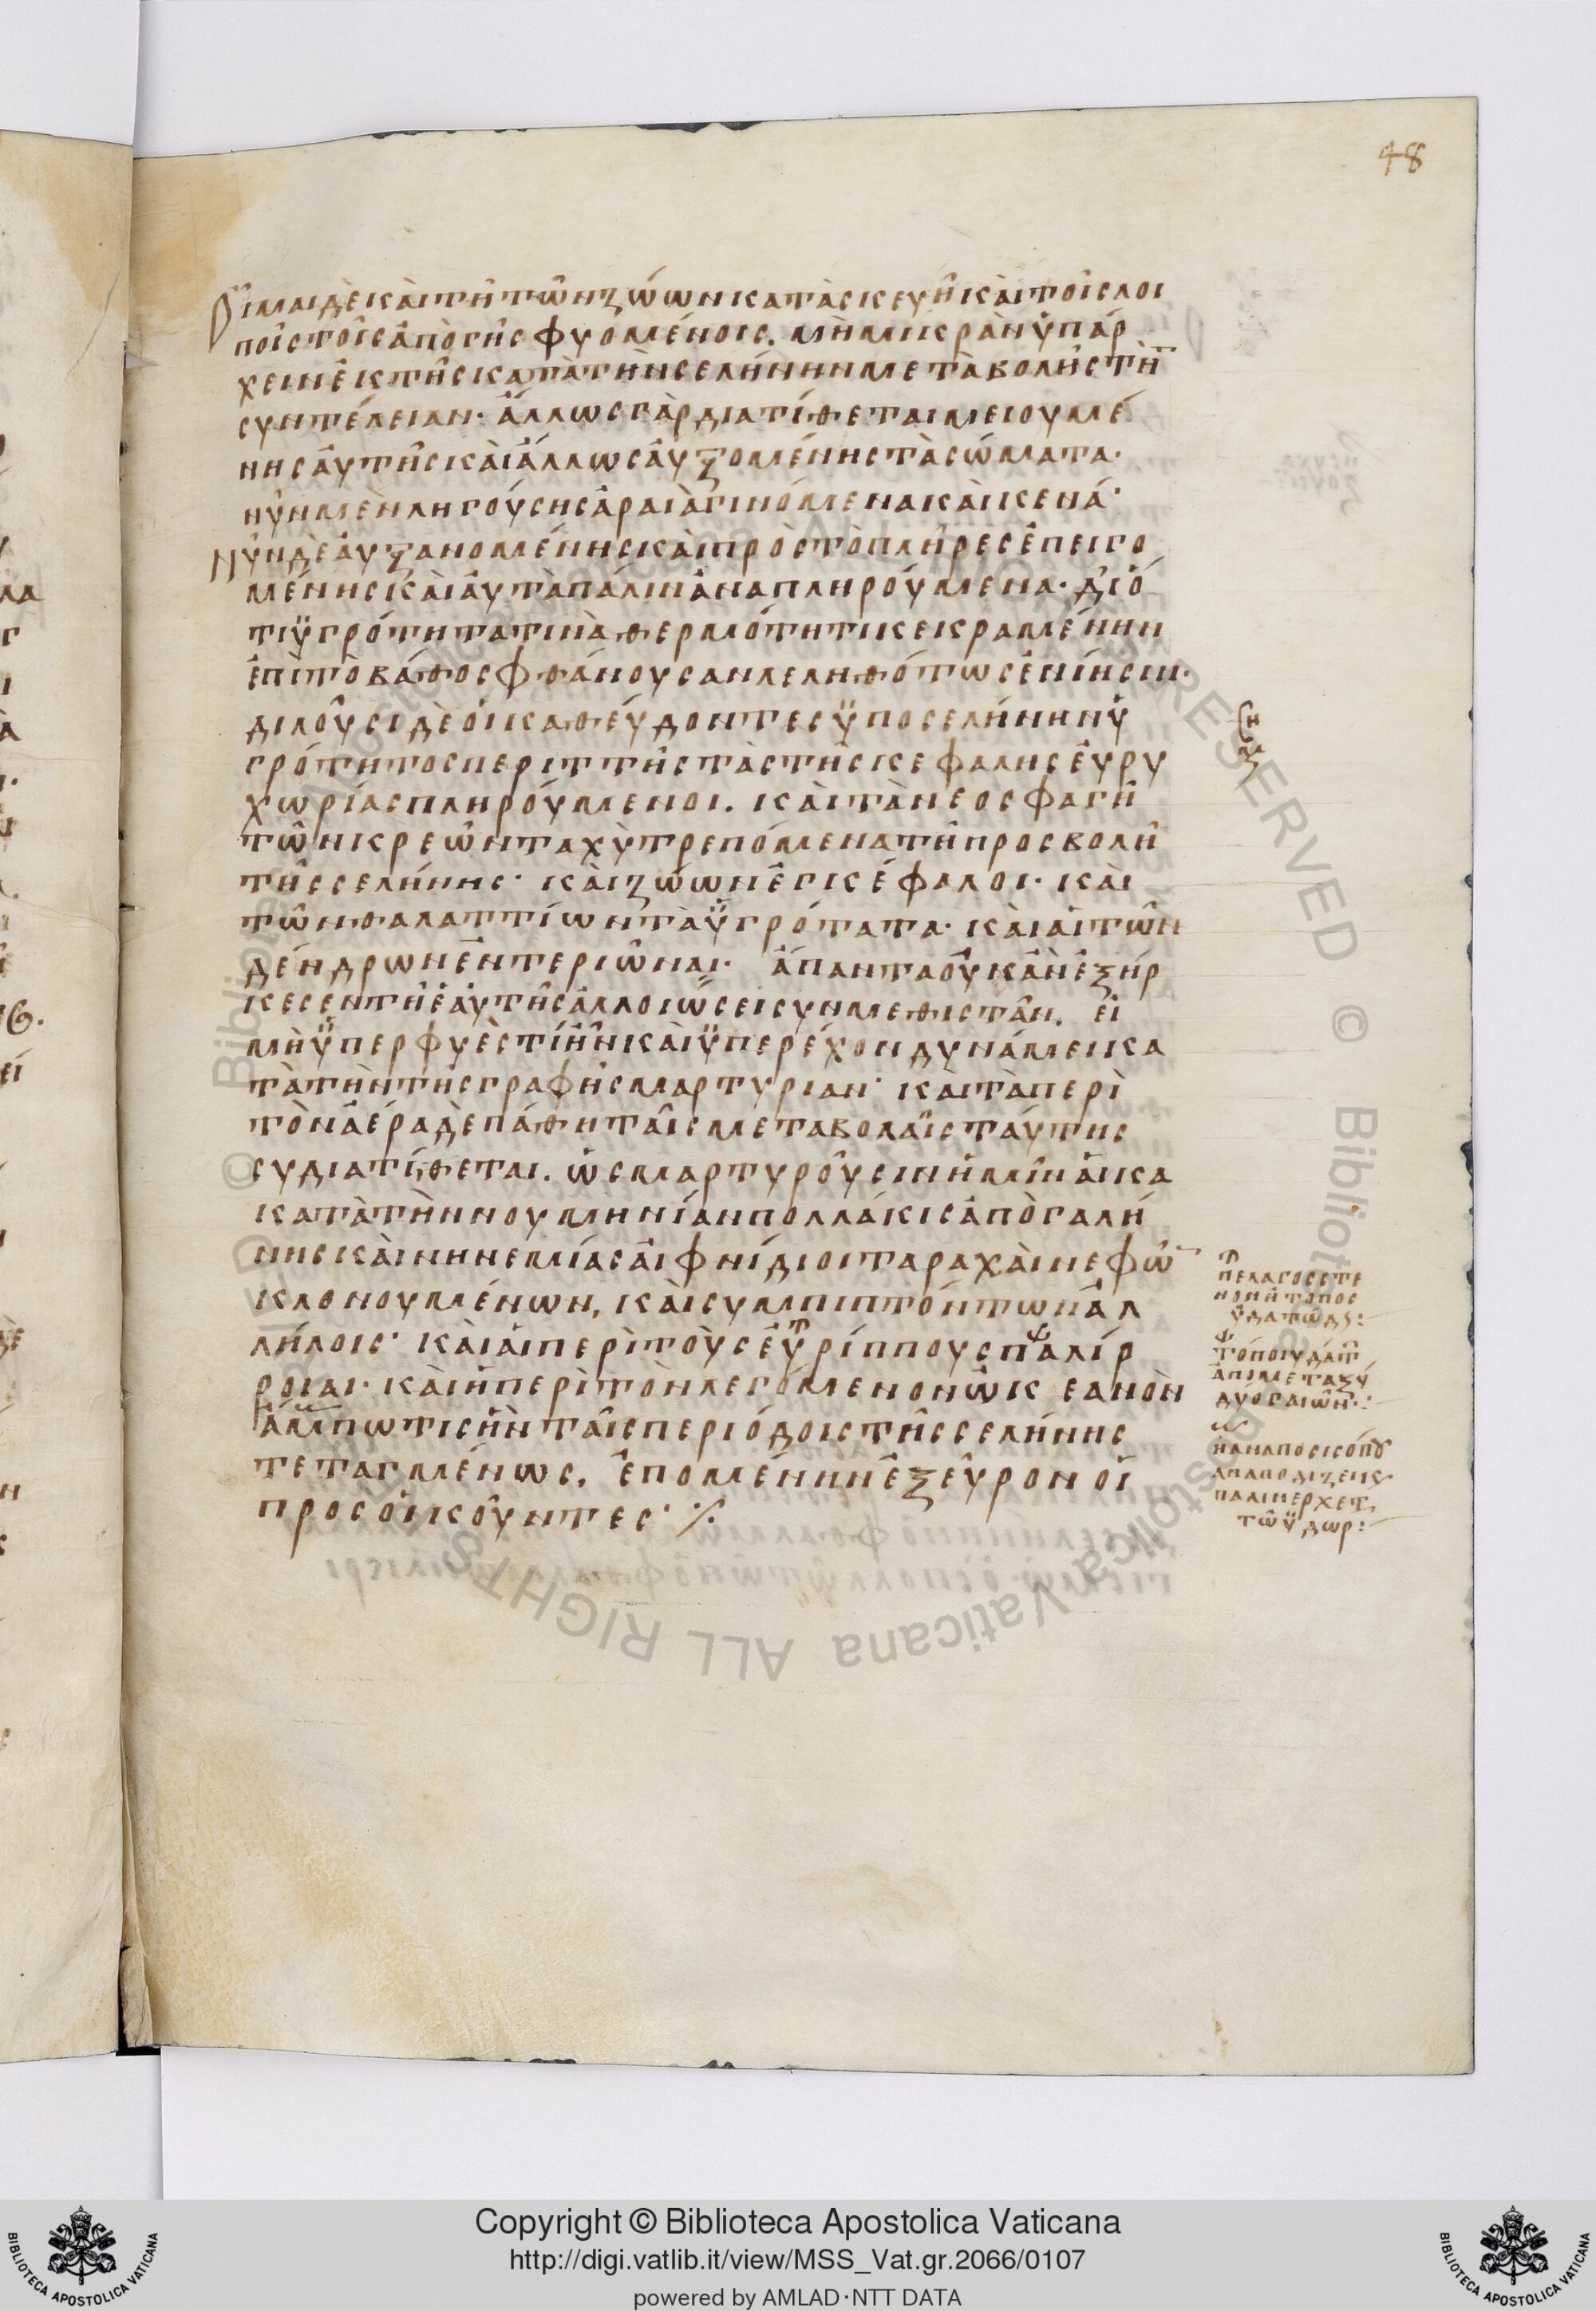 48
Οἶμαι δὲ καὶ τῇ τῶν ζώων κατασκευῇ καὶ τοῖς λοι
ποῖς τοῖς ἀπὸ γῆς φυομένοις. μὴ μικρὰν ὑπάρ
χειν ἐκ τῆς κατὰ τὴν σελήνην μεταβολῆς τὴν
συντέλειαν· ἄλλως γὰρ διατίθεται μειουμέ
νης αὐτῆς καὶ ἄλλως αὐξομένης τὰ σώματα·
νῦν μὲν ληγούσης ἀραιὰ γινόμενα καὶ κενά·
Νῦν δὲ αὐξανομένης καὶ πρὸς τὸ πλῆρες ἐπειγο
μένης καὶ αὐτὰ πάλιν ἀναπληρούμενα· διό
τι ὑγρότητα τινὰ θερμότητι κεκραμένην
ἐπὶ τὸ βάθος φθάνουσαν λεληθότως ἐνίησιν·
διλοῦσι δὲ οἱ καθεύδοντες ὑπο σελήνην ὑ
γρότητος περιττῆς τὰς τῆς κεφαλης εὐρυ
χωρίας πληρούμενοι. καὶ τὰ νεοσφαγῆ
τῶν κρεῶν ταχὺ τρεπόμενα τῇ προσβολῇ
τῆς σελήνης· καὶ ζώων ἐγκέφαλοι· καὶ
τῶν θαλαττίων τὰ ὑγρότατα· καὶ αἱ τῶν
δένδρων ἐντεριῶναι· ἅπαντα οὐκ ἂν ἐξήρ
κεσεν τῇ ἑαυτῆς ἀλλοιώσει συνμεθιστᾶν. εἰ
μὴ ὑπερφυὲς τί ἦν καὶ ὑπερέχον δυνάμει κα
τὰ τὴν τῆς γραφῆς μαρτυριαν· καὶ τὰ περὶ
τὸν ἀέρα δὲ πάθη ταῖς μεταβολαῖς ταύτης
συδιατίθεται. ὡς μαρτυροῦσιν ἡμῖν αἵ κα
κατὰ τὴν νουμηνίαν πολλάκις ἀπὸ γαλή
νης καὶ νηνεμίας αἰφνίδιοι ταραχαὶ νεφῶν
κλονουμένων, καὶ συμπιπτόντων ἀλ
λήλοις· καὶ αἱ περὶ τοὺς εὐρίππους παλίρ
ροιαι· καὶ ἡ περὶ τὸν λεγόμενον ὠκεανὸν
ἄμπωτις ἣν ταῖς περιόδοις τῆς σελήνης
τεταγμένως, ἑπομένην ἐξεῦρον οἱ
προσοικοῦντες· ⁒
πελαγος στε
νον ἢ τοπος
ὑδατώδς:
τόποι ὑδάτ
αἱ μεταξύ
δύο γαιῶν·:
παλιν ερχετ
τῶ ὕδωρ:
Copyright © Biblioteca Apostolica Vaticana
http://digi.vatlib.it/view/MSS_Vat.gr.2066/0107
powered by AMLAD·NTT DATA
BIBLIOTECA APOSTOLICA VATICANA
BIBLIOTECA APOSTOLICA VATICANA
© Biblioteca Apostolica Vaticana ALL RIGHTS RESERVED